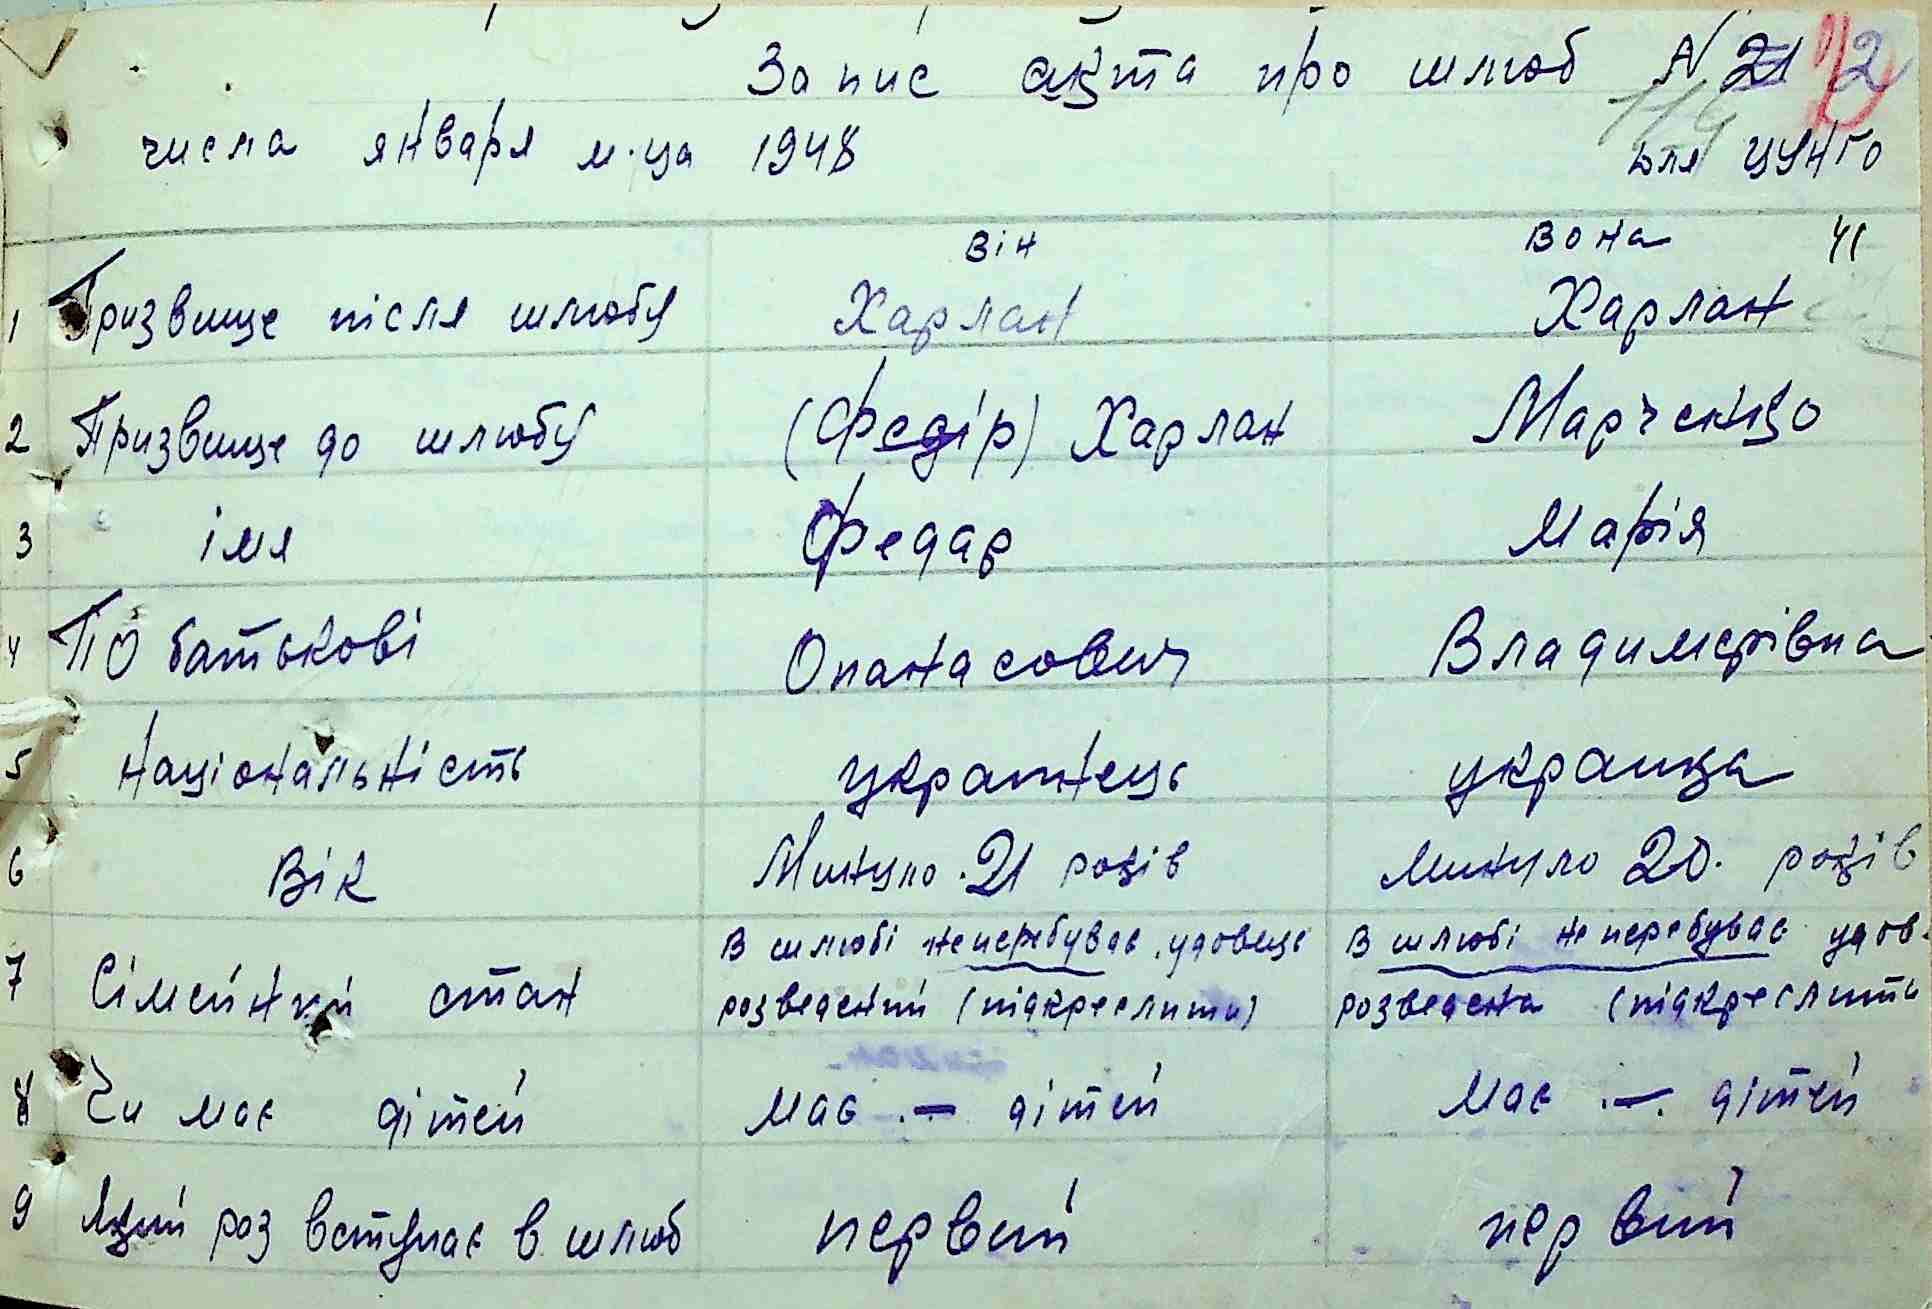 Запис акта про шлюб N 21 2
114
числа января м-ца 1948 для ЦУНГО
він вона 41
1 Призвище після шлюбу Харлан Харлан
2 Призвище до шлюбу (Федір) Харлан Марченко
3 імя Федар Марія
4 По батькові Опанасович Владимерівна
5 Національність українець украинка
6 Вік Минуло 21 років Минуло 20. років
7 Сімейний стан В шлюбі неперебуває, удовець В шлюбі неперебуває удов.
розведений (підкреслити) розведена (підкреслити
8 Чи має дітей має - дітей має - дітей
9 Який роз вступає в шлюб первий первий